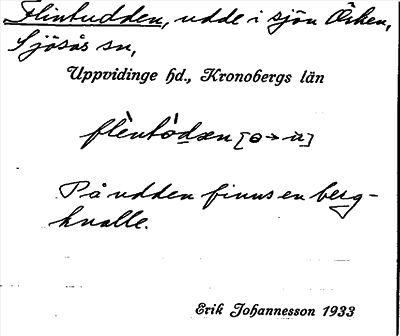 Flintudden, udde i sjön Örken,
Sjösås sn,
Uppvidinge hd., Kronobergs län
flèntòdæn [ɵ→u]
På udden finns en berg-
knalle.
Erik Johannesson 1933